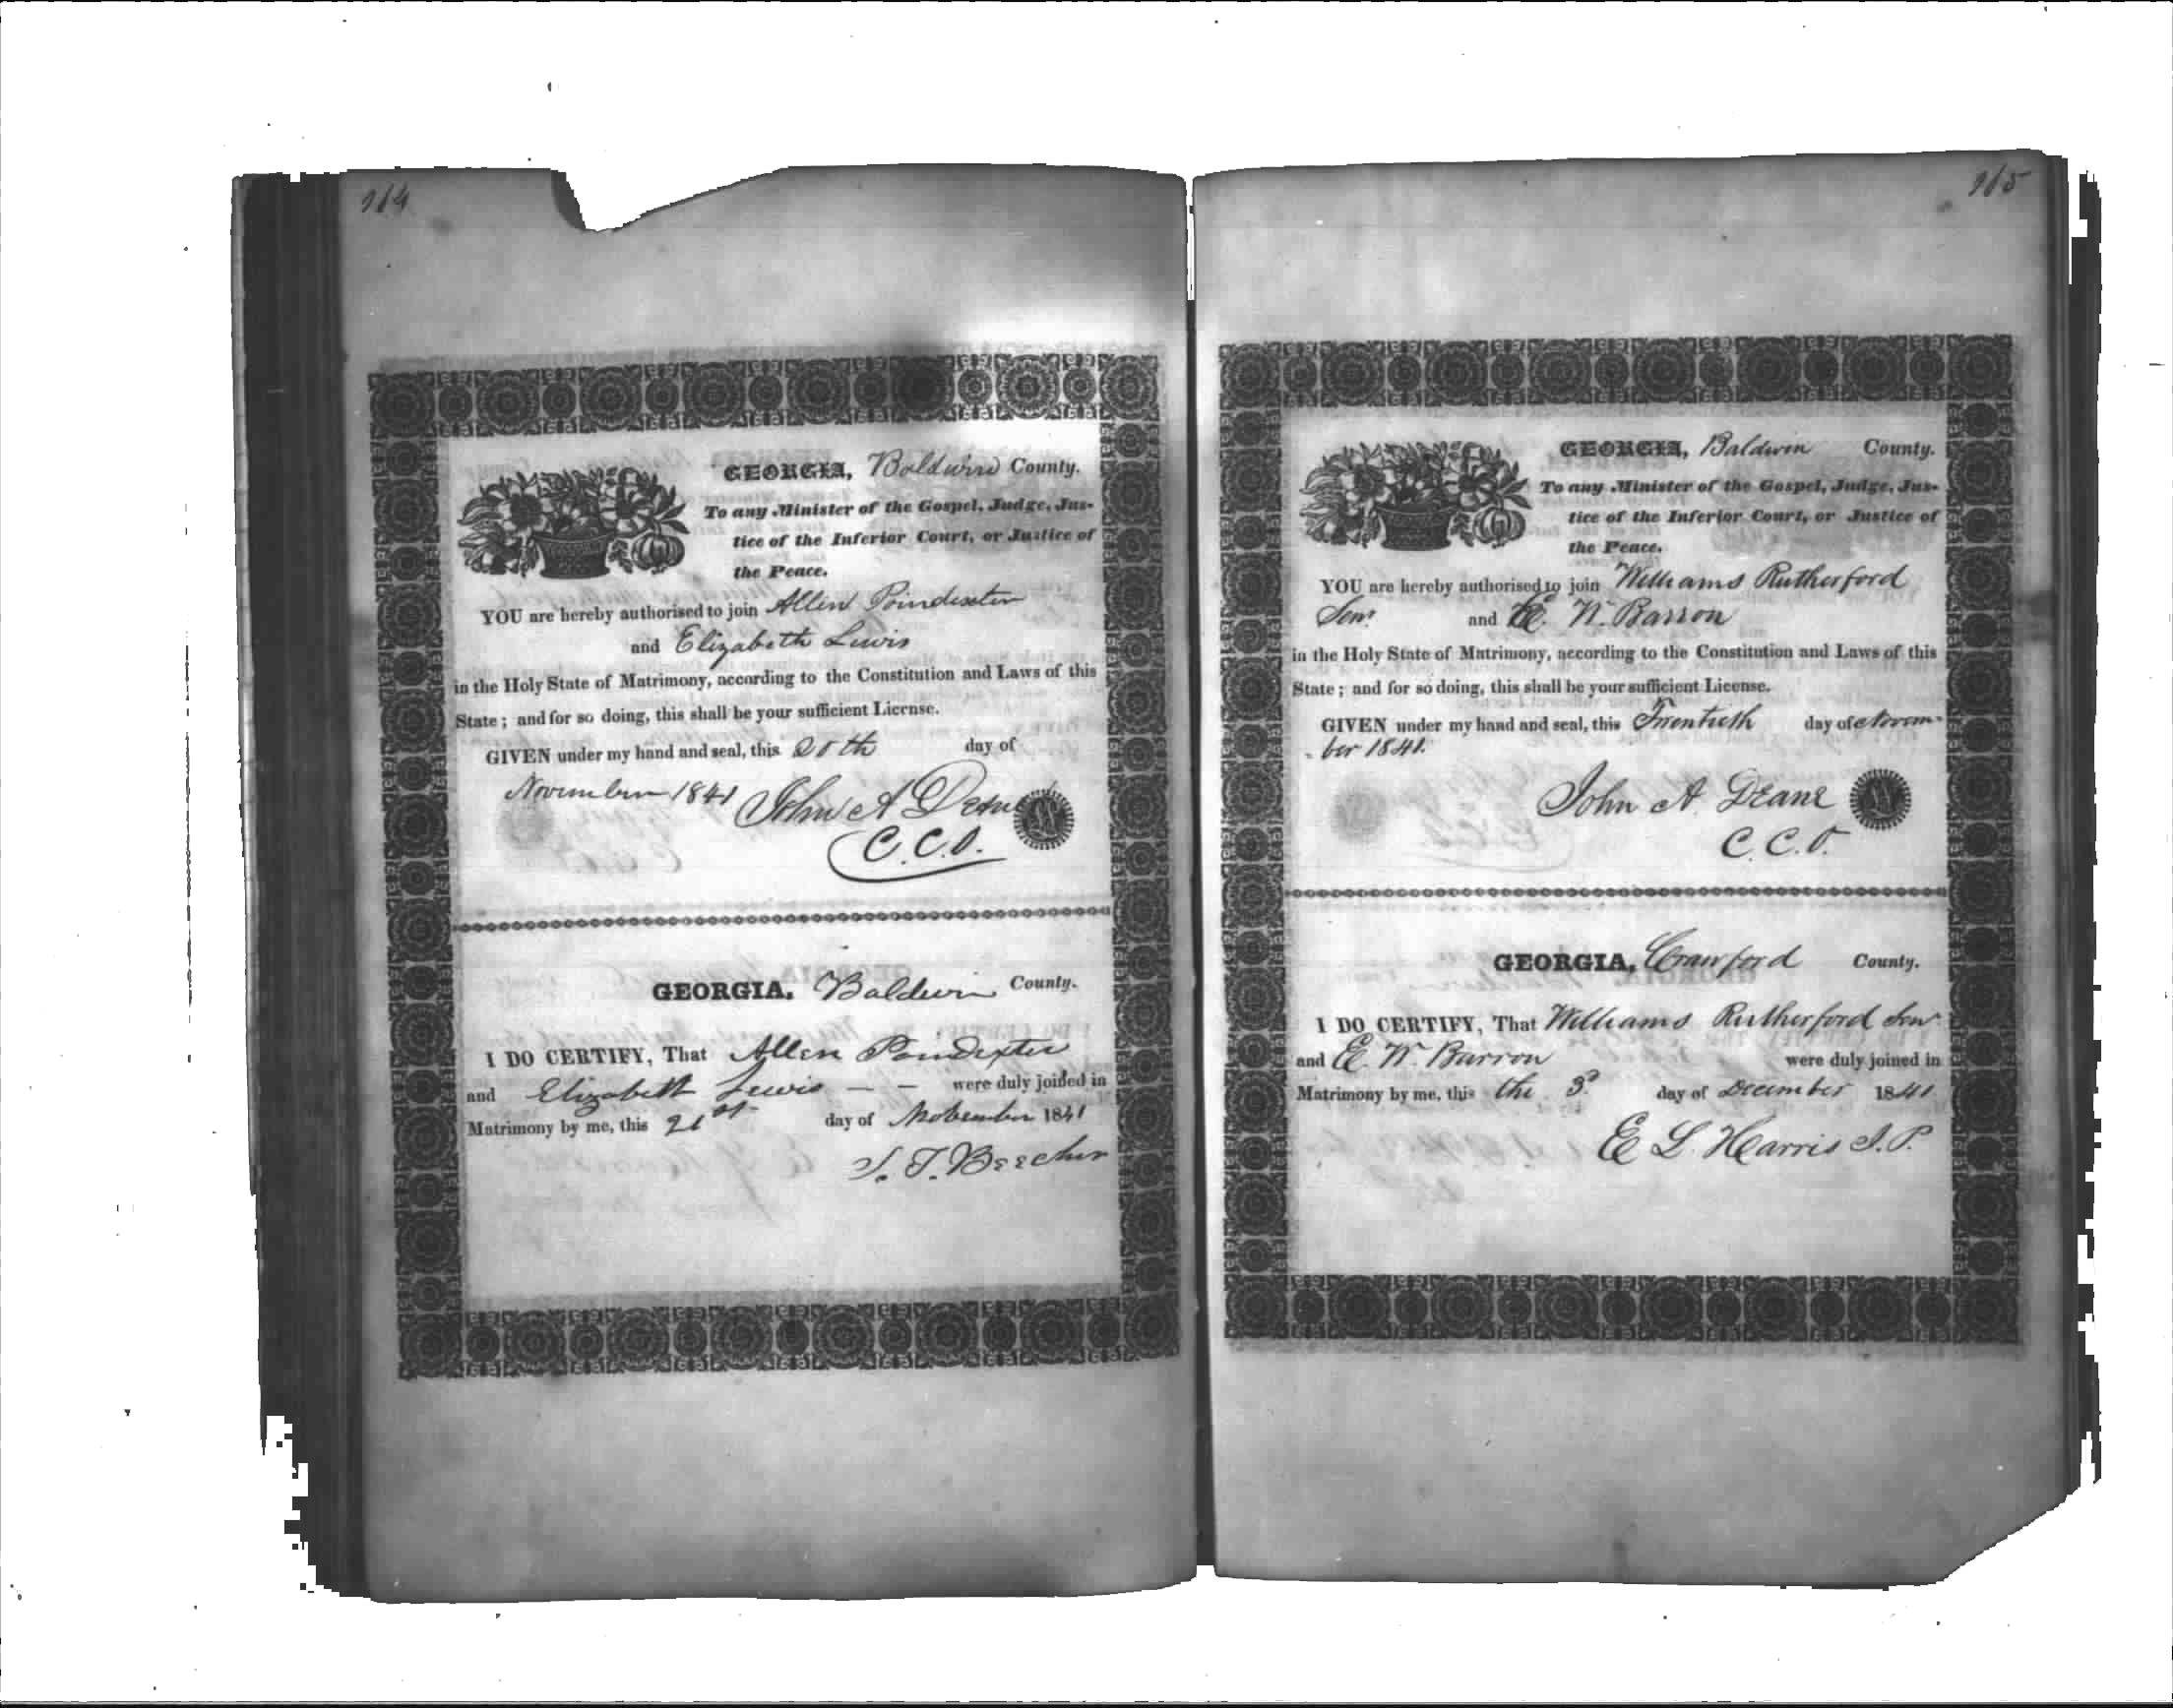 114
GEORGIA, Baldwin County.
To any Minister of the Gospel, Judge, Jus-
tice of the Inferior Court, or Justice of
the Peace.
YOU are hereby authorised to join Allen Poindexter
and Elizabeth Lewis
in the Holy State of Matrimony, according to the Constitution and Laws of this
State; and for so doing, this shall be your sufficient License.
GIVEN under my hand and seal, this 20th day of
November 1841 John A Deane
C.C.O.
GEORGIA, Baldwin County.
I DO CERTIFY, That Allen Poindexter
and Elizabeth Lewis — — were duly joined in
Matrimony by me, this 21st day of November 1841
S. T. Beecher
115
GEORGIA, Baldwin County.
To any Minister of the Gospel, Judge, Jus-
tice of the Inferior Court, or Justice of
the Peace.
YOU are hereby authorised to join Williams Rutherford
Senr and E. W. Barron
in the Holy State of Matrimony, according to the Constitution and Laws of this
State; and for so doing, this shall be your sufficient License.
GIVEN under my hand and seal, this Twentieth day of Novem-
ber 1841.
John A. Deane
C. C. O.
GEORGIA, Crawford County.
I DO CERTIFY, That Williams Rutherford Senr
and E. W. Barron were duly joined in
Matrimony by me, this the 3d day of December 1841
E L Harris J. P.